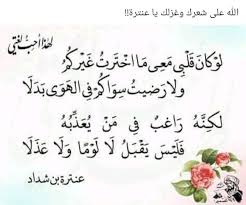 الله على شعرك وغزلك يا عنترة!!
لهذا أحب لغتي
لَوْ كَانَ قَلْبِي مَعِي مَا اخْتَرْتُ غَيْرَكُمُ
وَلَا رَضِيتُ سِوَاكُمْ فِي الْهَوَى بَدَلَا
لَكِنَّهُ رَاغِبٌ فِي مَنْ يُعَذِّبُهُ
فَلَيْسَ يَقْبَلُ لَا لَوْمًا وَلَا عَذَلَا
عنترة بن شداد